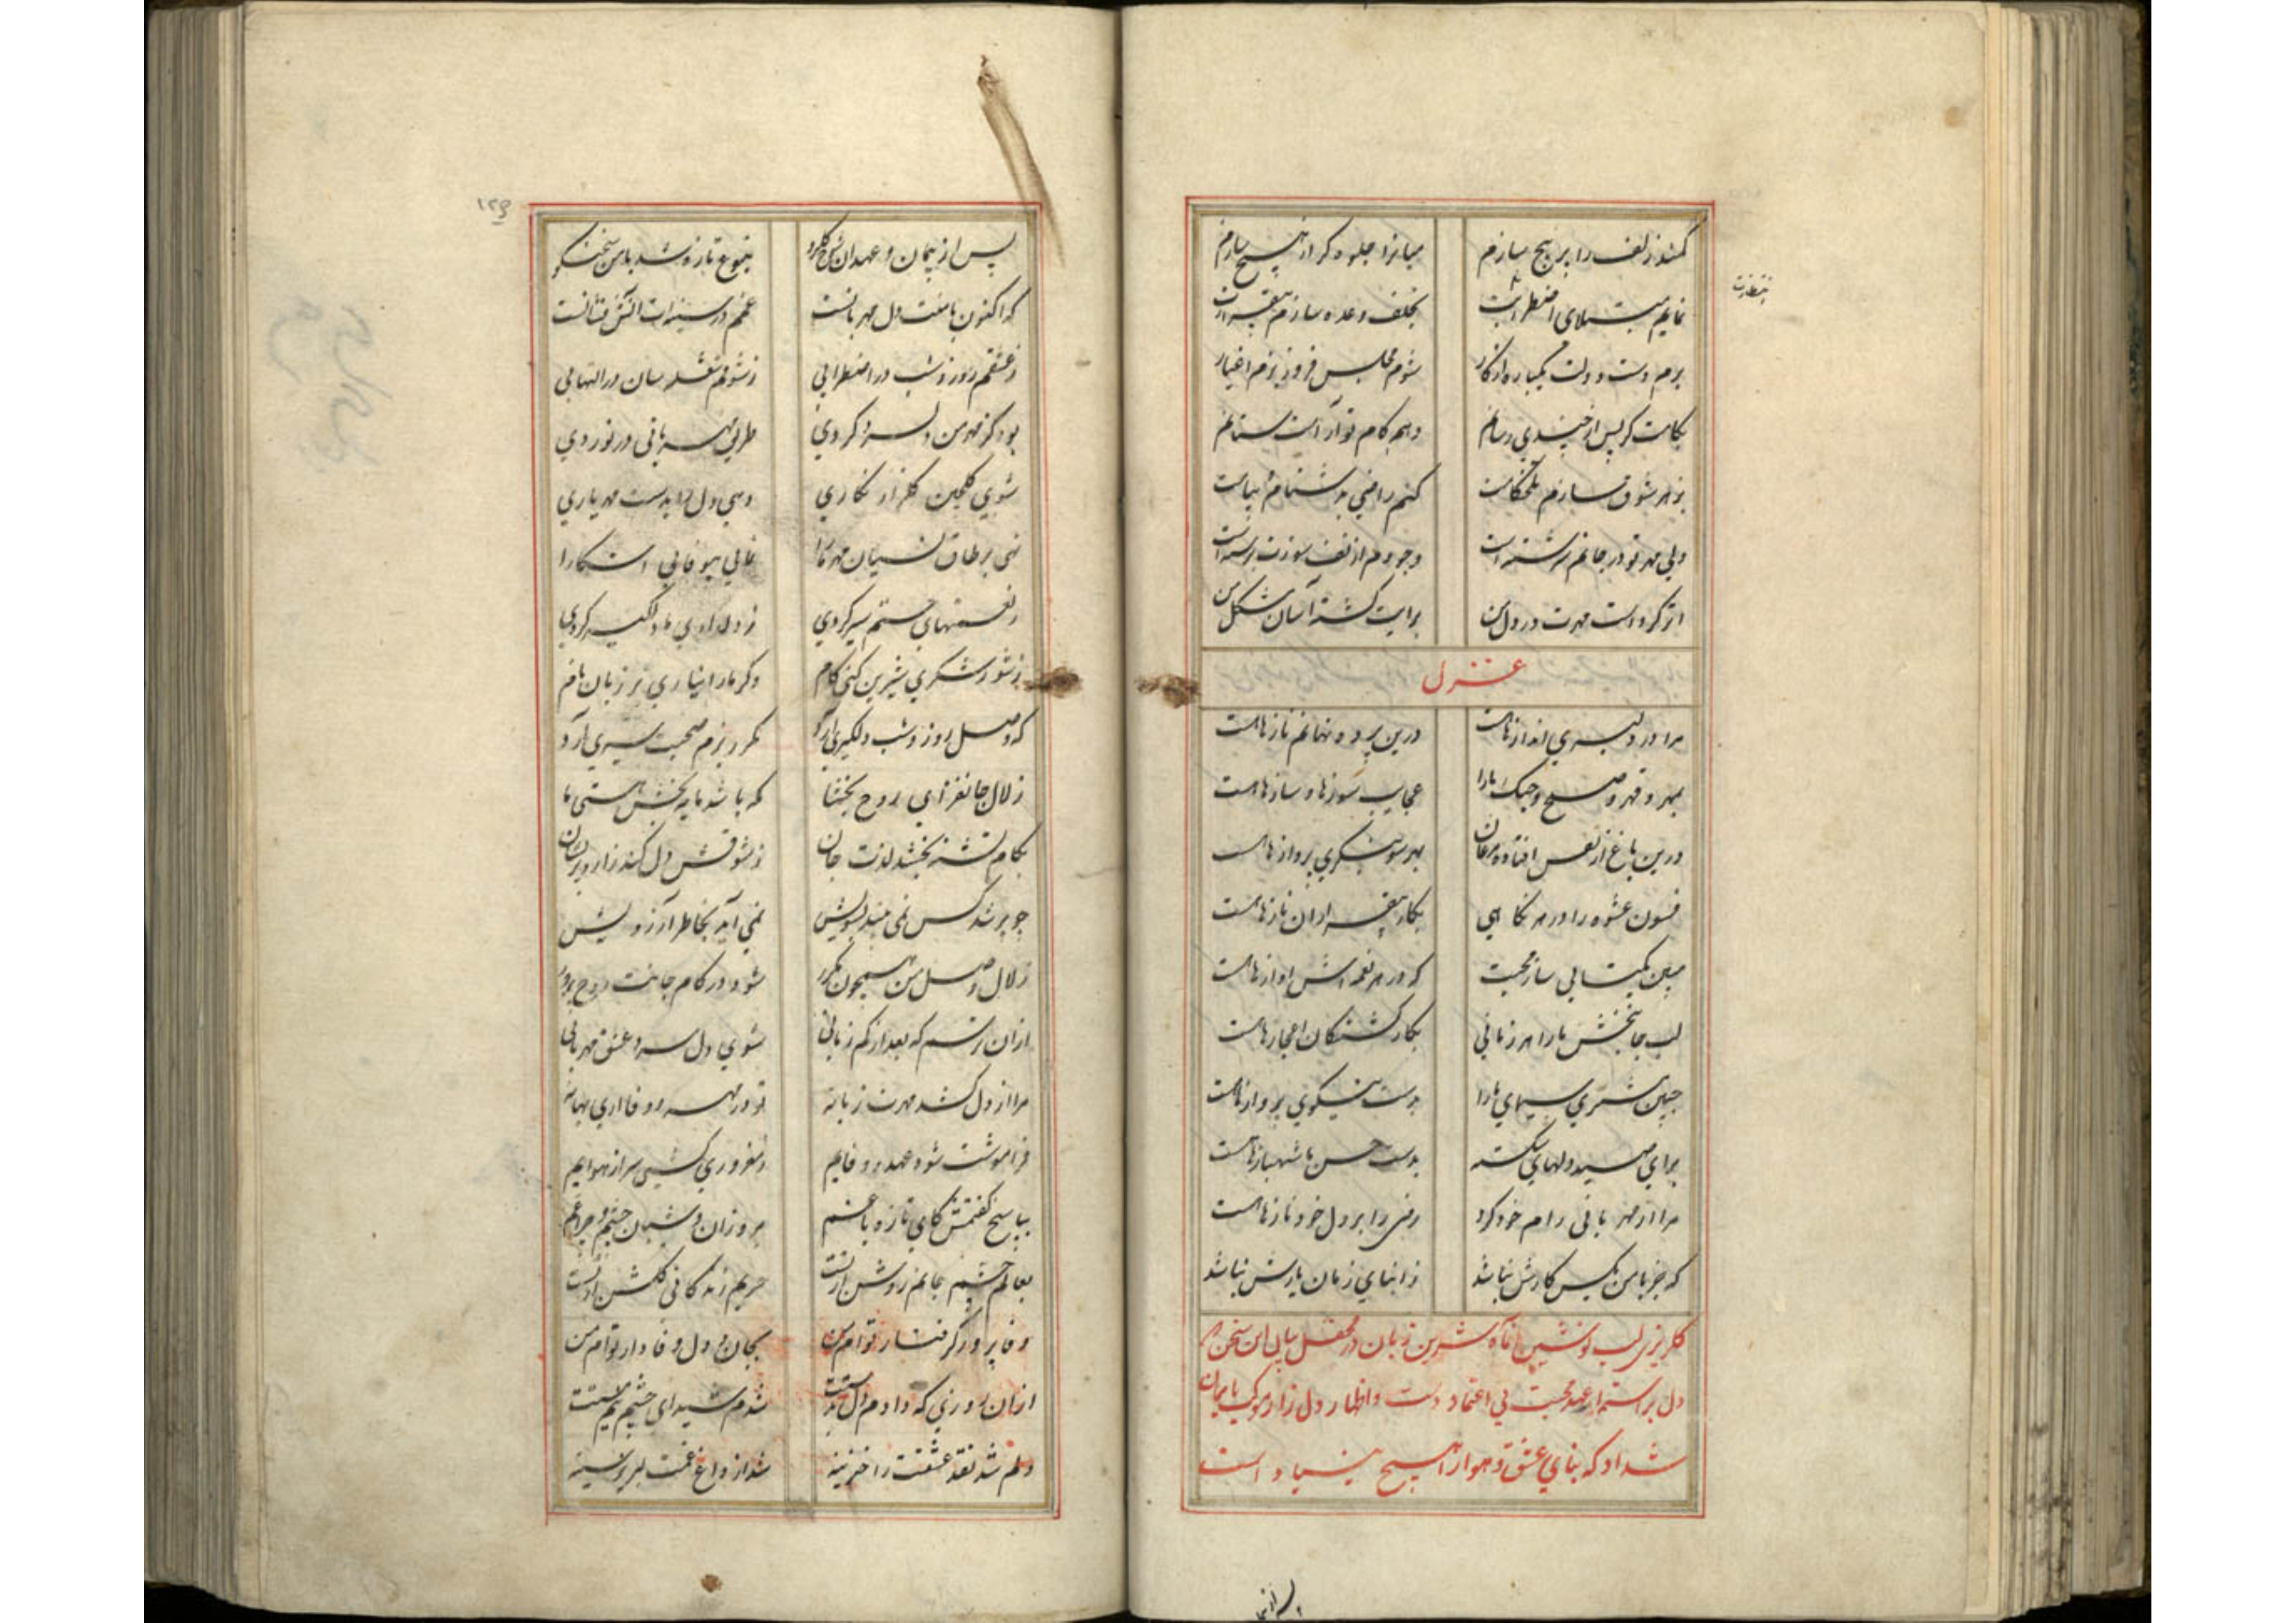 کمند زلف را پر پیچ سازم میانرا جلوه گر از هیچ سازم
نمایم مبتلای اضطرابت بخلف وعده سازم بیقرارت
برم دست و دلت یکباره از کار شوم مجلس فروز بزم اغیار
بکامت گر پس از چندی رسانم دهم کام تو آرامت ستانم
بزهر شوق سازم تلخکامت کنم راضی بدشنام از پیامت
ولی مهر تو در جانم سرشته است وجودم از تف سوزت برشته است
اثر کرده است مهرت در دل من برایت گشته آسان مشکل من
غزل
مرا در دلبری اندازهاست درین پرده نهانم نازهاست
بمهر و قهر و صلح و جنگ مارا عجایب سوزها و سازهاست
درین باغ از قفس افتاده مرغان بهر سو بنگری پروازهاست
فسون عشوه را در هر نگاهی بکار بیقراران نازهاست
مبین یکتایی ساز محبت که در هر نغمه اش اوازهاست
لب جانبخش مارا هر زمانی بکار کشتگان اعجازهاست
جبین مشتری سیمای مارا بدست نیکوی پروازهاست
برای صید دلهای شکسته بدست حسن ما شهبازهاست
مرا از مهربانی رام خود کرد رضی را بر دل خود نازهاست
که جز با من بکس کارش نباشد ز ابنای زمان یارش نباشد
کلریزی لب نوشین ماه شیرین زبان در محفل بیان این سخن
دل بر استمرار عهد محبت بی اعتماد دست و اظهار دل زار موکب بایمان
شداد که بنای عشق و هوا از هیچ بنیاد است
پس از
۱۲۹
پس از پیمان و عهد ان بنوع تازه شد با من سخنگو
که اکنون با منت دل مهربانست غمم در سینه ات آتش فشانست
ز عشقم روز و شب در اضطرابی ز شوقم شعله سان در التهابی
بود کز مهر من دلسرد کردی طریق مهربانی در نوردی
شوی گلچین گلزار نگاری دهی دل را بدست مهر یاری
نهی بر طاق نسیان مهر ما را نمایی بیوفایی اشکارا
ز نعمتهای حسنم سیر کردی ز دلداری ما دلگیر کردی
ز شور شکری شیرین کنی کام دگر مارا نیاری بر زبان نام
که وصل روز و شب دلگیری آرد مکرر بزم صحبت سیری آرد
زلال جانفزای روح بخشا که باشد مایه بخش هستی ما
بکام تشنه بخشد لذت جان ز شوقش دل کند زار و پریشان
چو پر شد کس نمی بیند بسویش نمی آید بخاطر آرزویش
زلال وصل من همچون مکرر شود در کام جانت روح پرور
ازان ترسم که بعد از کم زمانی شوی دل سرد عشق مهربانی
مرا از دل کشد مهرت زبانه تو در مهر و وفا آری بهانه
فراموشت شود عهد و وفایم ز مغروری کشی سر از هوایم
بپاسخ گفتمش کای تازه باغم بروزان و شبان چشم و چراغم
بعالم چشم جانم روشن از تست حریم زندگانی گلشن از تست
وفا پرور گرفتار توام من بجان و دل وفادار توام من
ازان روزی که دادم دل بدستت شدم شیدای چشم نیم مستت
دلم شد نقد عشقت را خزینه شد از داغ غمت لبریز سینه